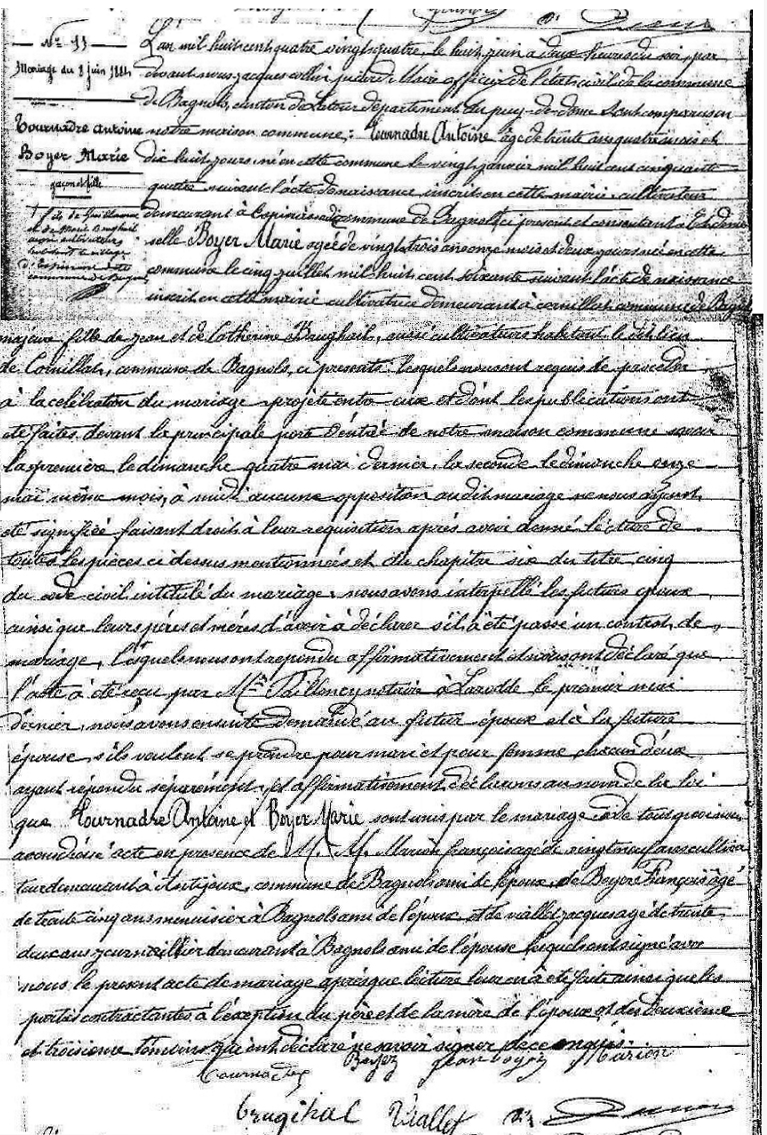 N° 11
Mariage du 8 juin 1884
Tournadre Antoine
Boyer Marie
garçon et fille
fils de Guillaume
et de Marie Baughail
aussi cultivateurs
habitant le village
d'Espinasse dite
commune de Bagnols
L'an mil huit cent quatre vingt quatre, le huit juin à deux heures du soir, par
devant nous Jacques maire officier de l'état civil de la commune
de Bagnols, canton de Latour département du puy-de-dome sont comparus en
notre maison commune: Tournadre Antoine âgé de trente ans quatre mois et
dix huit jours, né en cette commune le vingt janvier mil huit cent cinquante
quatre suivant l'acte de naissance inscrit en cette mairie, cultivateur
demeurant à commune de Bagnols, ci présent et consentant. Et demoi
selle Boyer Marie agée de vingt trois ans onze mois et deux jours née en cette
commune le cinq juillet mil huit cent soixante suivant l'acte de naissance
inscrit en cette mairie cultivatrice demeurant à Cornillat commune de Bagnols
majeure fille de Jean et de Catherine Baughail, aussi cultivateurs habitant le dit lieu
de Cornillat, commune de Bagnols, ci présents. lesquels nous ont requis de procéder
à la célébration du mariage projeté entre eux et dont les publications ont
été faites devant la principale porte d'entrée de notre maison commune savoir
la première, le dimanche quatre mai dernier, la seconde le dimanche onze
mai même mois, à midi aucune opposition au dit mariage ne nous ayant
été signifiée faisant droit à leur requisition après avoir donné lecture de
toutes les pièces ci dessus mentionnées et du chapitre six du titre cinq
du code civil intitulé du mariage, nous avons interpellé les futurs époux
ainsi que leurs pères et mères d'avoir à déclarer s'il a été passé un contrat de
mariage, lesquels nous ont repondu affirmativement et nous ont déclaré que
l'acte a été reçu par Me notaire à Larodde le premier mai
dernier, nous avons ensuite demandé au futur époux et à la future
épouse s'ils veulent se prendre pour mari et pour femme chacun d'eux
ayant répondu séparément et affirmativement, déclarons au nom de la loi
que Tournadre Antoine et Boyer Marie sont unis par le mariage et de tout quoi nous
avons dressé acte en présence de M. M. Marion françois agé de vingt neuf ans cultiva
teur demeurant à Antijoux, commune de Bagnols ami de l'époux, de Boyer François âgé
de trente cinq ans menuisier à Bagnols ami de l'époux et de viallet jacques agé de trente
deux ans journaillier demeurant à Bagnols ami de l'épouse lesquels ont signé avec
nous le present acte de mariage après que lecture leur en a été faite ainsi que les
parties contractantes à l'exception du père et de la mère de l'époux et des deuxième
et troisième témoins qui ont déclaré ne savoir signer de ce enquis.
Tournadre Boyer Jean boyer Marion
Viallet